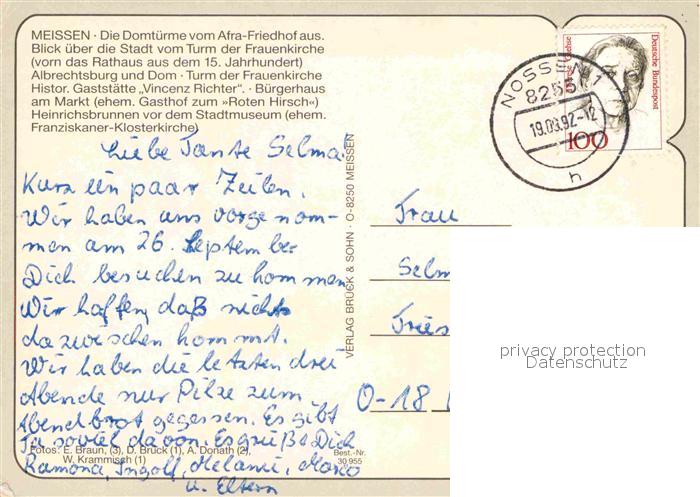 MEISSEN · Die Domtürme vom Afra-Friedhof aus.
Blick über die Stadt vom Turm der Frauenkirche
(vorn das Rathaus aus dem 15. Jahrhundert)
Albrechtsburg und Dom · Turm der Frauenkirche
Histor. Gaststätte „Vincenz Richter“ · Bürgerhaus
am Markt (ehem. Gasthof zum »Roten Hirsch«)
Heinrichsbrunnen vor dem Stadtmuseum (ehem.
Franziskaner-Klosterkirche)
Liebe Tante Selma!
Kurz ein paar Zeilen.
Wir haben uns vorgenom-
men am 26. September
Dich besuchen zu kommen
Wir hoffen, daß nichts
dazwischen kommt.
Wir haben die letzten drei
Abende nur Pilze zum
Abendbrot gegessen. Es gibt
ja soviel davon. Es grüßt Dich
Ramona, Ingolf, Melanie, Marco
u. Eltern
Fotos: E. Braun, (3), D. Brück (1), A. Donath (2),
W. Krammisch (1)
Best.-Nr.
30 955
VERLAG BRÜCK & SOHN · O-8250 MEISSEN
NOSSEN 1
8255
19.09.92-12
h
Deutsche Bundespost
100
Frau
Selm
Fries
O-18
privacy protection
Datenschutz